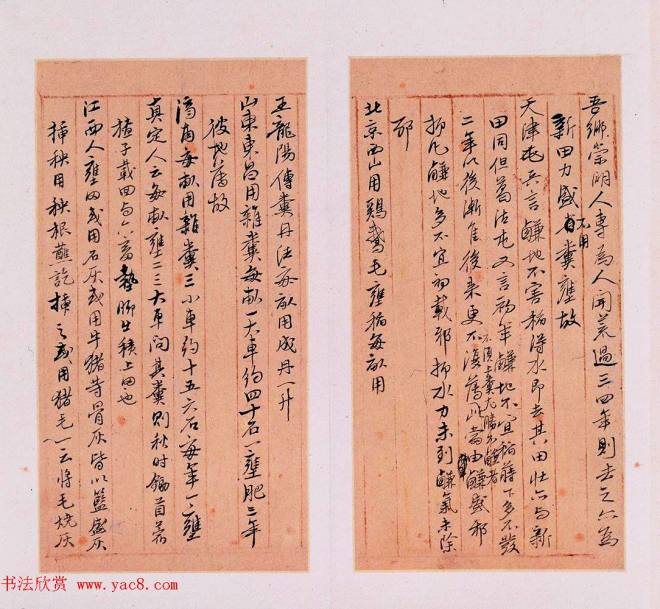 吾鄉崇明人專為人開荒過三四年則去之六為
新田力盛不用
省糞壅故
天津屯兵言鹻地不害稻得水即去其田壯六與新
田同但葛沽屯又言初年鹻地不宜稻蒔下多不發
二年以後漸佳後來更不須糞
抑凡鹻地多不宜初栽邪抑水力未到鹻氣未除
邪
北京西山用鷄鵞毛壅稻每畝用
王龍陽傳糞丹法每畝用成丹一升
山東東昌用雜糞每畝一大車約四十石一壅肥三年
彼地舊故
濟南每畝用雜糞三小車約十五六石每年一壅
真定人云每畝壅二三大車問其糞則秋時鋤苜蓿
楂子載回與六畜墊脚生積上田也
江西人壅田或用石灰或用牛猪等骨灰皆以籃盛灰
插秧用秧根蘸訖插之或用猪毛一云將毛燒灰
书法欣赏 www.yac8.com